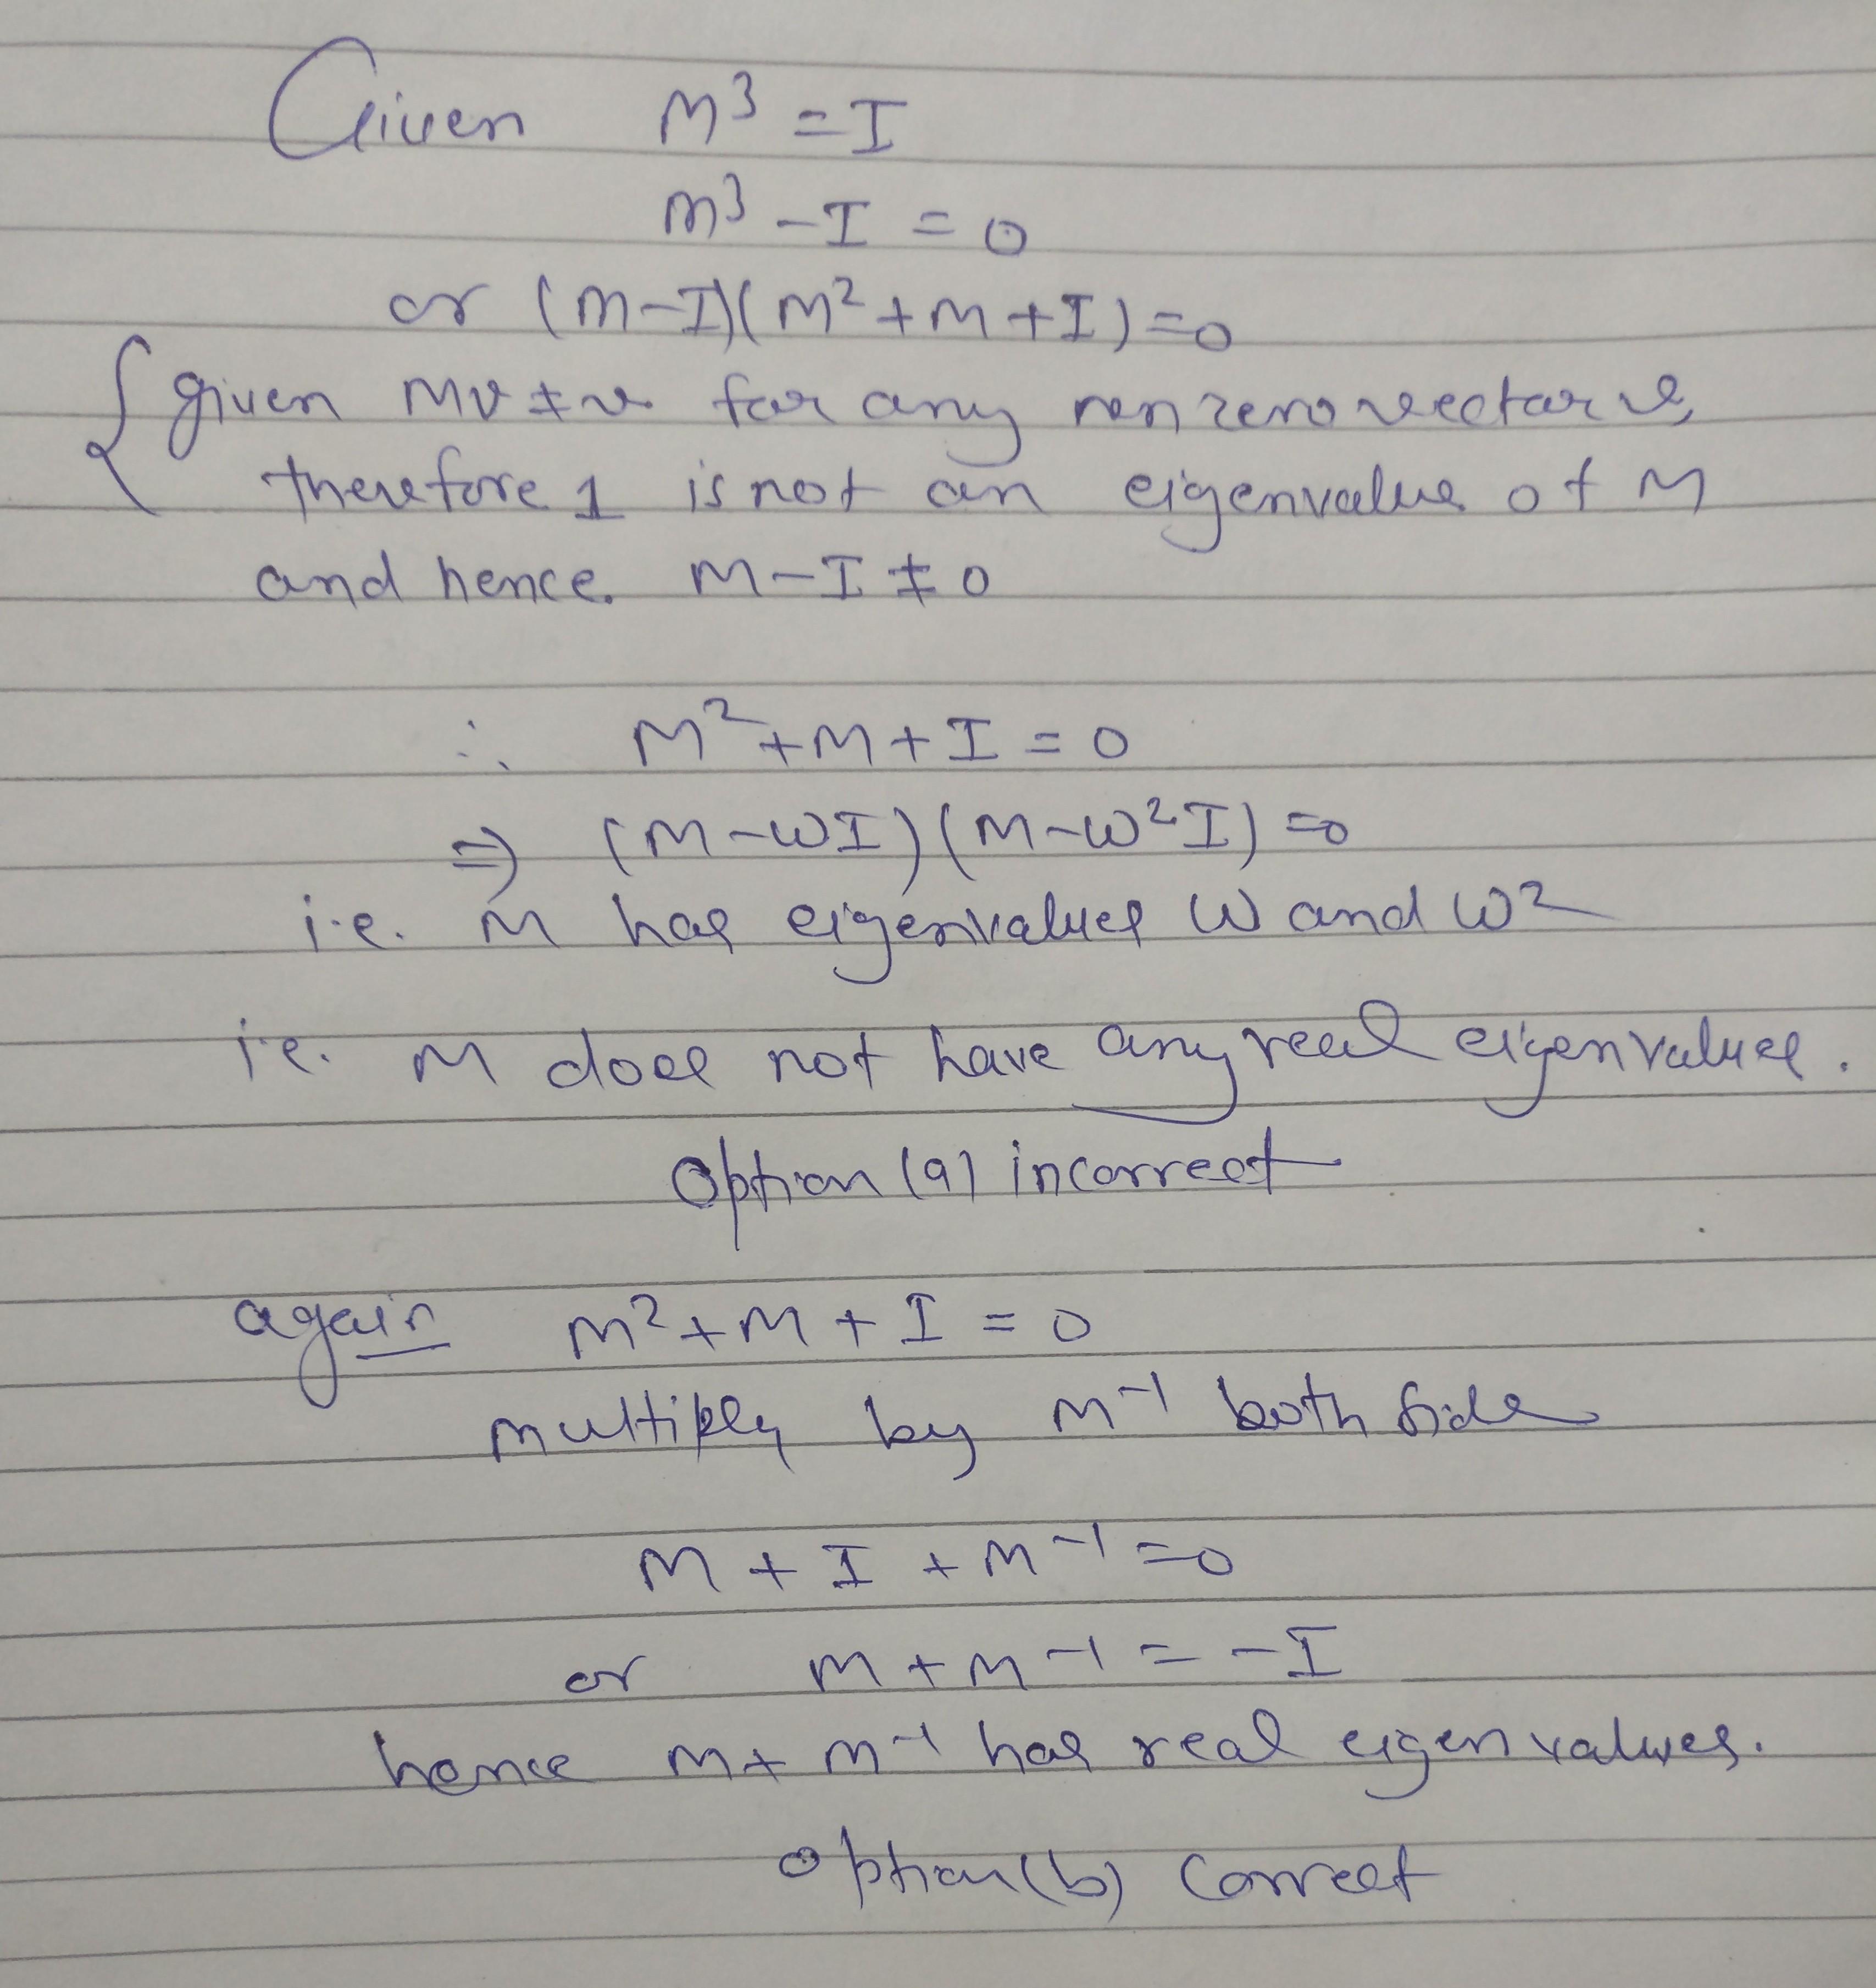 Given M³ = I
M³ - I = 0
or (M-I)(M²+M+I)=0
given Mv ≠ v for any nonzero vector v,
therefore 1 is not an eigenvalue of M
and hence. M-I ≠ 0
∴ M²+M+I = 0
⇒ (M-ωI)(M-ω²I)=0
i.e. M has eigenvalues ω and ω²
i.e. M does not have any real eigenvalues.
Option (a) incorrect
again M²+M+I = 0
multiply by M⁻¹ both side
M + I + M⁻¹=0
or M+M⁻¹ = -I
hence M+M⁻¹ has real eigenvalues.
option(b) correct